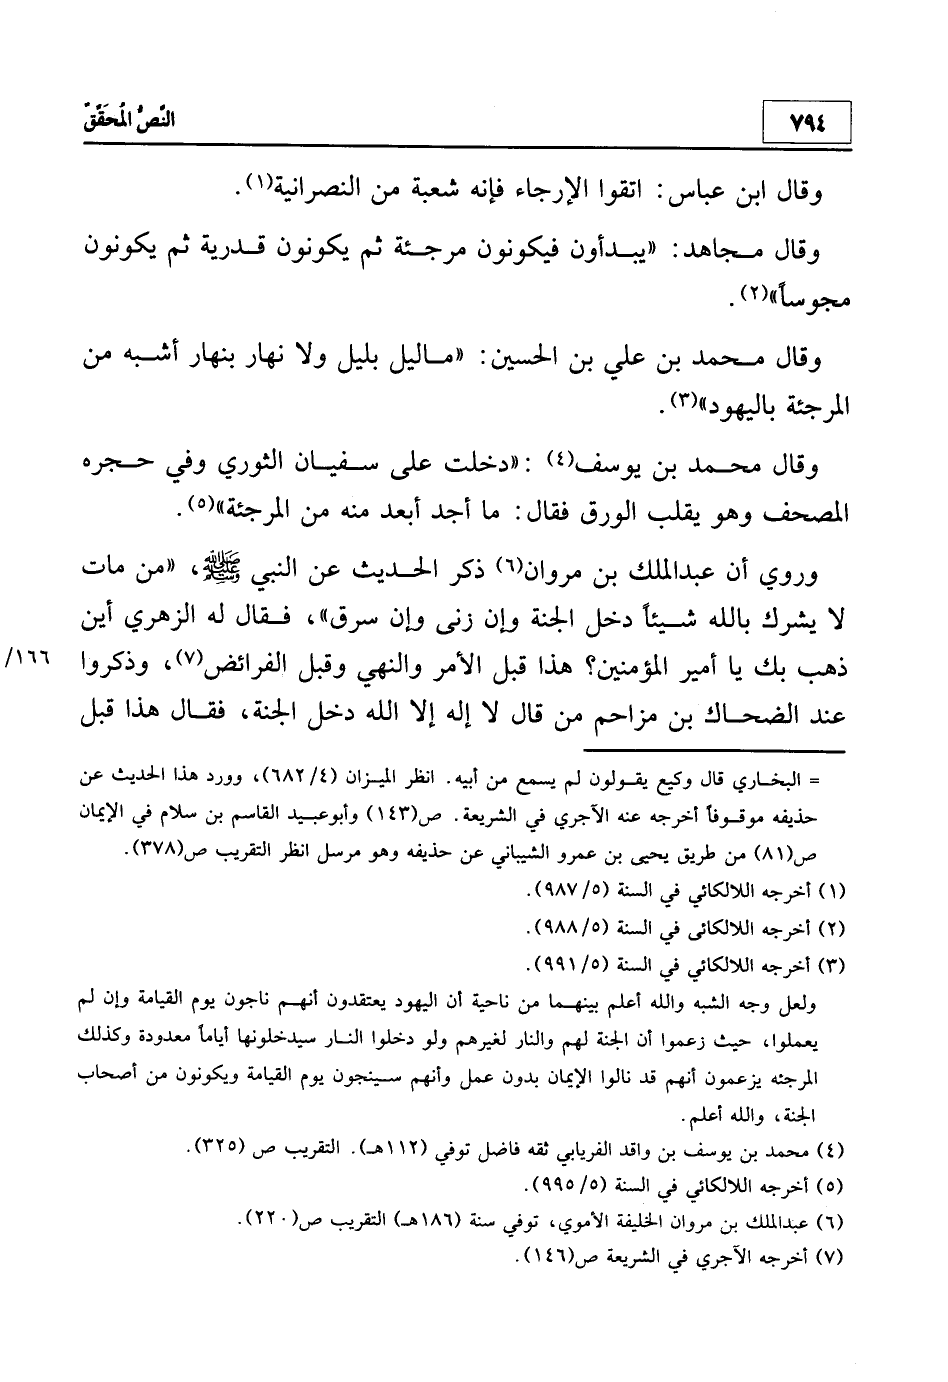 ٧٩٤ النَّصُّ المُحَقَّقُ
وقال ابن عباس: اتقوا الإرجاء فإنه شعبة من النصرانية(١).
وقال مجاهد: «يبدأون فيكونون مرجئة ثم يكونون قدرية ثم يكونون
مجوساً»(٢).
وقال محمد بن علي بن الحسين: «ماليل بليل ولا نهار بنهار أشبه من
المرجئة باليهود»(٣).
وقال محمد بن يوسف(٤) :«دخلت على سفيان الثوري وفي حجره
المصحف وهو يقلب الورق فقال: ما أجد أبعد منه من المرجئة»(٥).
وروي أن عبدالملك بن مروان(٦) ذكر الحديث عن النبي ﷺ، «من مات
لا يشرك بالله شيئاً دخل الجنة وإن زنى وإن سرق»، فقال له الزهري أين
ذهب بك يا أمير المؤمنين؟ هذا قبل الأمر والنهي وقبل الفرائض(٧)، وذكروا ١٦٦/
عند الضحاك بن مزاحم من قال لا إله إلا الله دخل الجنة، فقال هذا قبل
= البخاري قال وكيع يقولون لم يسمع من أبيه. انظر الميزان (٤/ ٦٨٢)، وورد هذا الحديث عن
حذيفه موقوفاً أخرجه عنه الآجري في الشريعة. ص(١٤٣) وأبوعبيد القاسم بن سلام في الإيمان
ص(٨١) من طريق يحيى بن عمرو الشيباني عن حذيفه وهو مرسل انظر التقريب ص(٣٧٨).
(١) أخرجه اللالكائي في السنة (٥/ ٩٨٧).
(٢) أخرجه اللالكائى في السنة (٥/ ٩٨٨).
(٣) أخرجه اللالكائي في السنة (٥/ ٩٩١).
ولعل وجه الشبه والله أعلم بينهما من ناحية أن اليهود يعتقدون أنهم ناجون يوم القيامة وإن لم
يعملوا، حيث زعموا أن الجنة لهم والنار لغيرهم ولو دخلوا النار سيدخلونها أياماً معدودة وكذلك
المرجئه يزعمون أنهم قد نالوا الإيمان بدون عمل وأنهم سينجون يوم القيامة ويكونون من أصحاب
الجنة، والله أعلم.
(٤) محمد بن يوسف بن واقد الفريابي ثقه فاضل توفي (١١٢هـ). التقريب ص (٣٢٥).
(٥) أخرجه اللالكائي في السنة (٥/ ٩٩٥).
(٦) عبدالملك بن مروان الخليفة الأموي، توفي سنة (١٨٦هـ) التقريب ص(٢٢٠).
(٧) أخرجه الآجري في الشريعة ص(١٤٦).